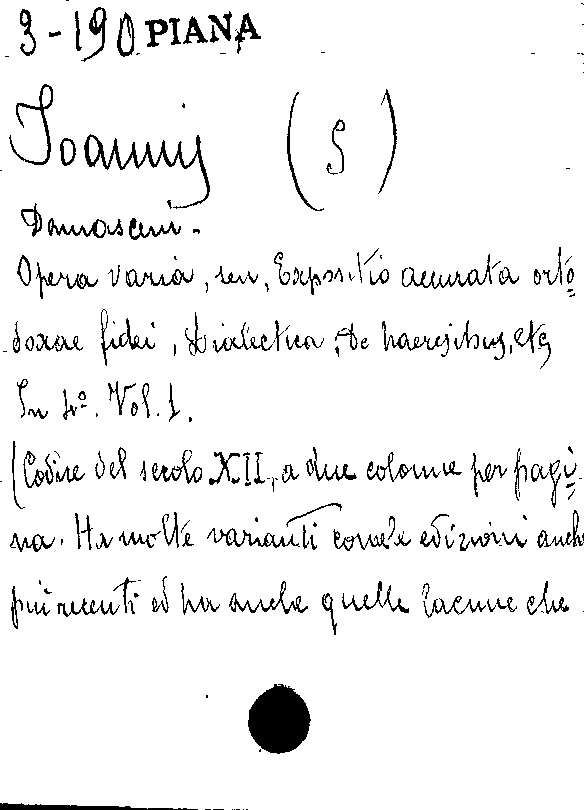 3-190 PIANA
Ioannis (S)
Damasceni.
Opera varia, seu, Expositio accurata orto
doxae fidei, Dialectica, De haeresibus, etc
In 4º. Vol. 1.
(Codice del secolo XII, a due colonne per pagi
na. Ha molte varianti con le edizioni anche
più recenti ed ha anche quelle lacune che